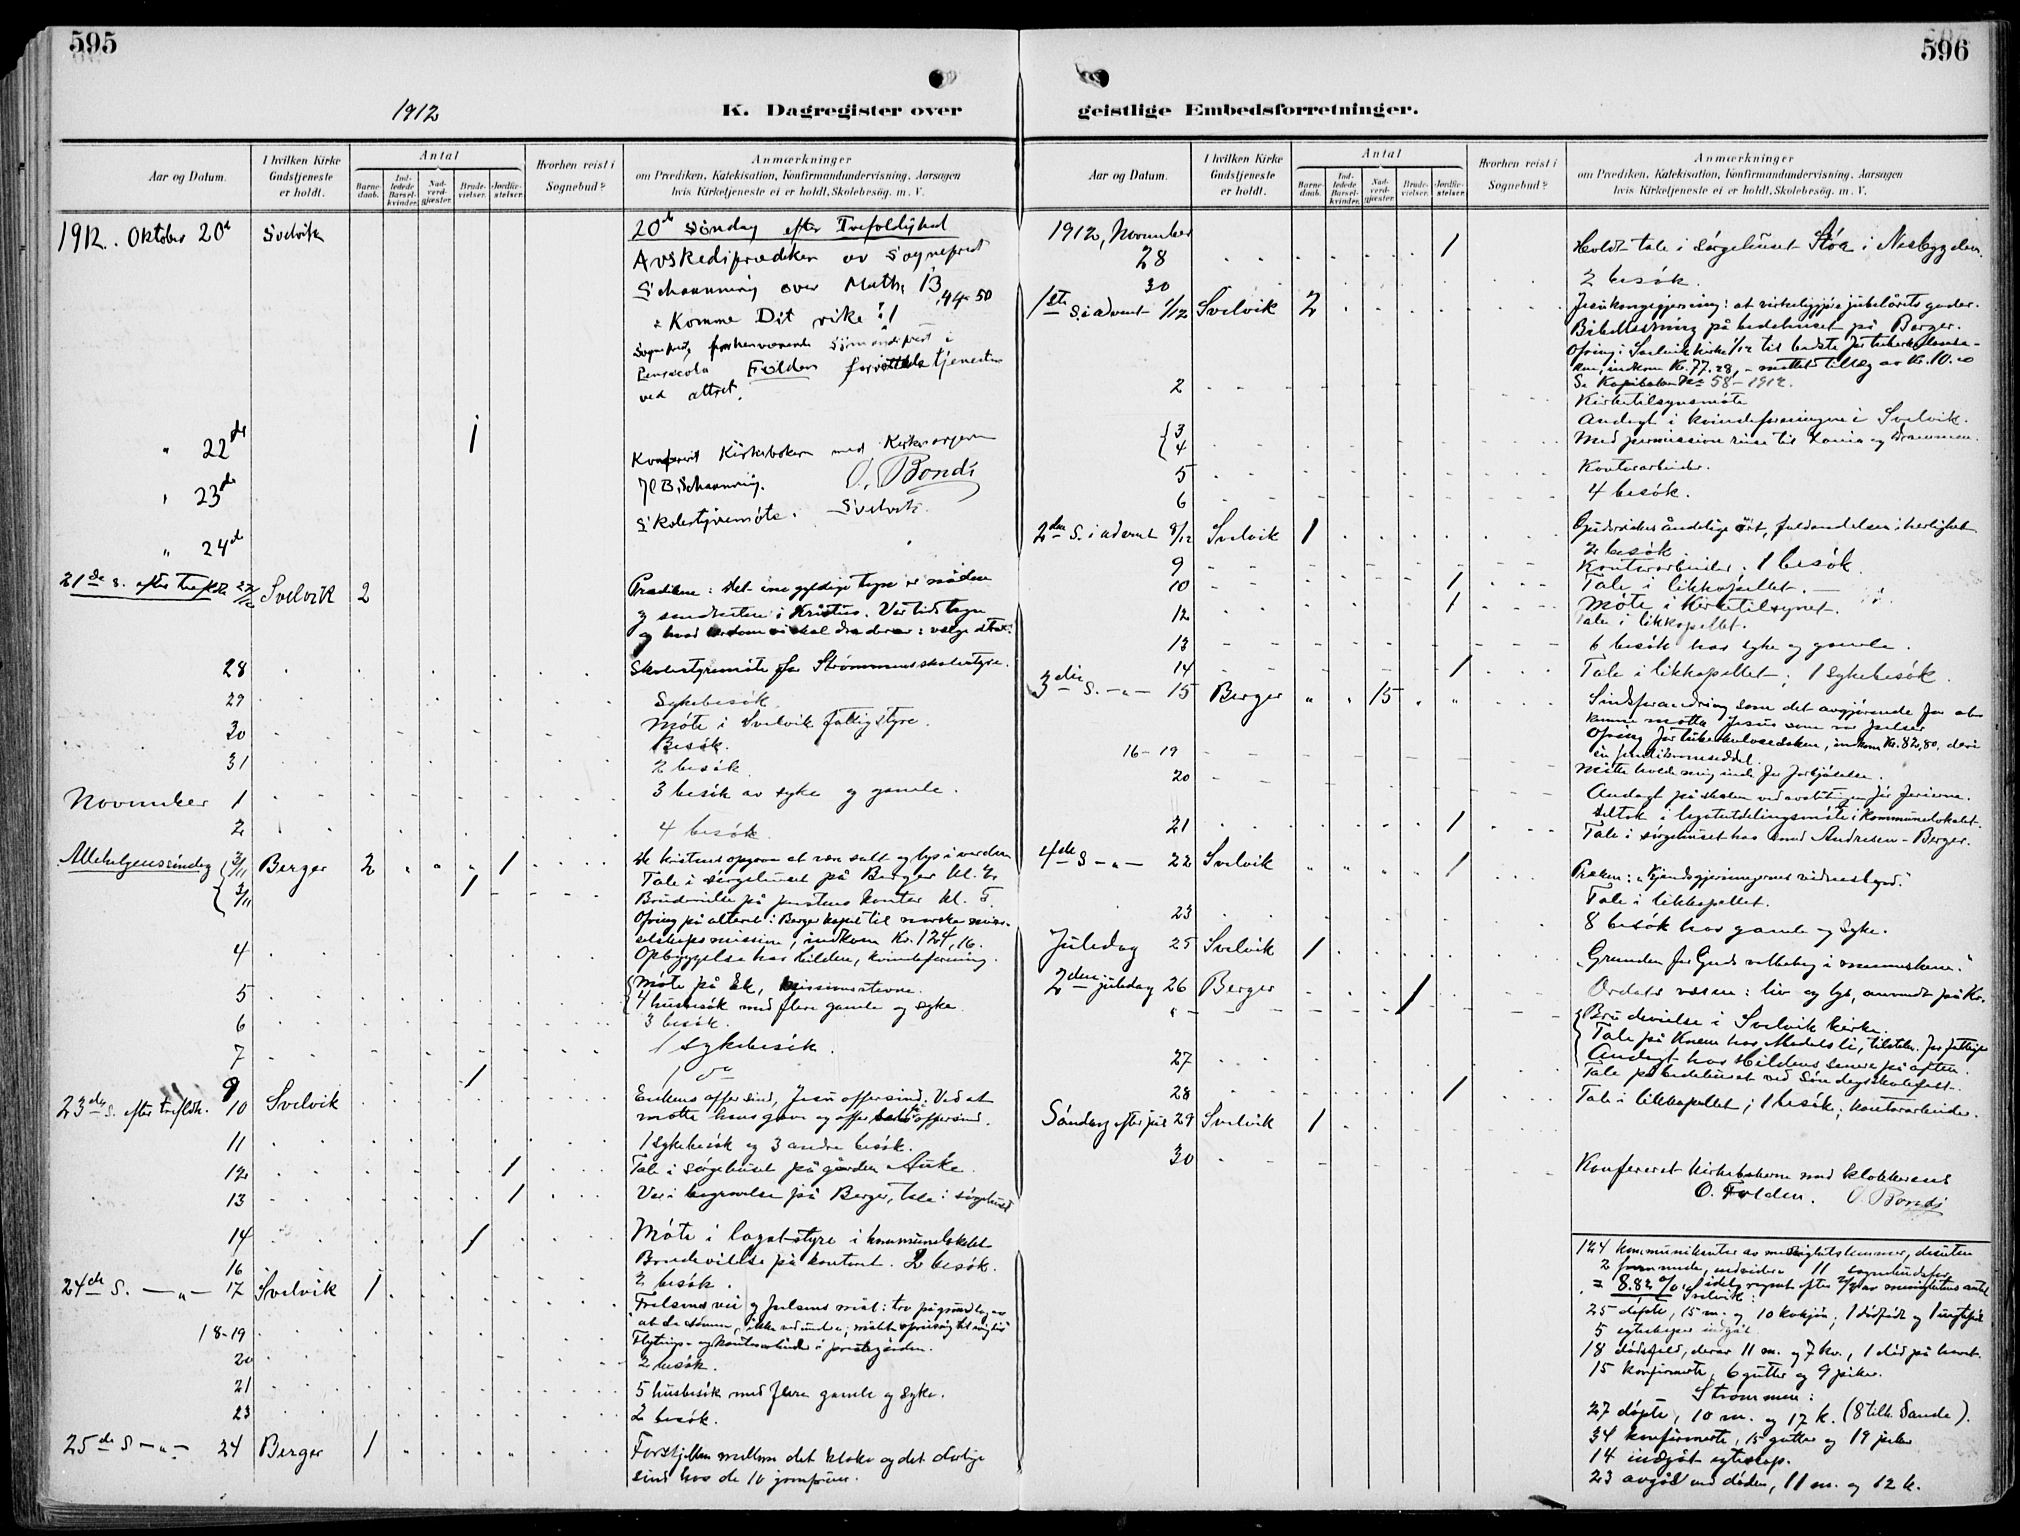 595
1912
K. Dagregister over
Aar og Datum.
I hvilken Kirke Gudstjeneste er holdt.
Antal
Barnedaab.
Indledede Barselkvinder.
Nadverdgjæster.
Brudevielser.
Jordfæstelser.
Hvorhen reist i Sognebud?
Anmærkninger
om Prædiken, Katekisation, Konfirmandundervisning, Aarsagen
hvis Kirketjeneste ei er holdt, Skolebesøg. m. V.
1912. Oktober 20d Svelvik
20d søndag efter Trefoldighed
Avskedsprædiken av Sogneprest
Schanning over Math. 13
44-50
Komme Dit rike!
Sogneprest, forhenværende Sjømandsprest i
Pensacola Folden forrettede tjenesten
ved altret.
" 22de 1
Konferert Kirkeboken med Kirkesangeren
Schanning. O. Bonds
" 23de
Skolestyremøte. Svelvik
" 24d
21de s. efter trefold. 27/10 Svelvik 2
Prædiken: Det ene gyldige tegn er nåden
og sandheten i Kristus.
28 Skolestyremøte for Strømmens skolestyre.
29 Sykebesøk.
Møte i Svelvik fattigstyre.
30 Besøk.
31 2 besøk.
November 1 3 besøk av syke og gamle.
2 4 besøk.
Allehelgenssøndag 3/11 Berger 2 " " " 1
De kristnes opgave at være salt og lys i verden
Tale i sørgehuset på Berger kl.
3/11 1 Brudevielse på prestens kontor kl.
Ofring på alteret i Berger kapel til norske
indkom Kr. 124,16.
4 Opbyggelse hos Hilden, kvindeforening.
5 Møte på Ek, missionsstevne.
4 husbesøk med flere gamle og syke.
6 3 besøk.
7 1 sykebesøk.
9 1 1 do
23de s. efter trefoldh. 10 Svelvik
Enkens offersind, Jesu offersind. Ved at
motta hans gave og offer offersind.
11 1 sykebesøk og 3 andre besøk.
12 1 Tale i sørgehuset på gården Auke.
13 1 Var i begravelse på Berger, tale i sørgehuset
14 1 Møte i legatstyre i kommunelokalet
Brudevielse på kontoret. 2 besøk.
16 2 besøk.
24de S. — " — 17 Svelvik 1
Frelsens vei og frelsens mål: tro på grundlag av
18-19 Flytnings- og kontorarbeide i prestegården.
20 2 besøk.
21 5 husbesøk med flere gamle og syke.
23 2 besøk.
25de S — " — 24 Berger 1
Forskjellen mellem det kloke og det dårlige
sind hos de 10 jomfruer.
596
geistlige Embedsforretninger.
Aar og Datum.
I hvilken Kirke Gudstjeneste er holdt.
Antal
Barnedaab.
Indledede Barselkvinder.
Nadverdgjæster.
Brudevielser.
Jordfæstelser.
Hvorhen reist i Sognebud?
Anmærkninger
om Prædiken, Katekisation, Konfirmandundervisning, Aarsagen
hvis Kirketjeneste ei er holdt, Skolebesøg. m. V.
1912, November
28 1 Holdt tale i sørgehuset Støa i Nesbygden.
30 2 besøk.
1ste S. i advent 1/12 Svelvik 2
Jesu kongegjerning: at virkeliggjøre jubelårets goder.
Bibellesning på bedehuset på Berger.
Ofring i Svelvik kirke 1/12 til
indkom Kr. 77.28, — mottat tillæg av Kr. 10.00
58 - 1912.
2 Kirketilsynsmøte
Andagt i kvindeforeningen i Svelvik.
3
4 Med permission reise til Xania og Drammen.
5 Kontorarbeide.
6 4 besøk.
2den S. i advent 8/12 Svelvik 1
Gudsrikets åndelige art, fuldendelsen i herlighet
2 besøk
9 Kontorarbeide. 1 besøk.
10 1 Tale i likkapellet.
12 1 Møte i Kirketilsynet.
Tale i likkapellet.
13 6 besøk hos syke og gamle.
14 1 Tale i likkapellet; 1 sykebesøk.
3die S. — " — 15 Berger " " 15 " "
Sindsforandring som det avgjørende for at
kunne motta Jesus som vor frelser
indkom Kr. 82,80, deri
16-19 Måtte holde mig inde for forkjølelse.
20 Andagt på skolen ved avslutningen før ferierne.
Deltok i legatutdelingsmøte i kommunelokalet.
21 1 Tale i sørgehuset hos smed Andresen - Berger.
4de S — " — 22 Svelvik " " " " 1
Præken: "Kjendsgjerningernes vidnesbyrd."
Tale i likkapellet.
23 8 besøk hos gamle og syke.
Juledag 25 Svelvik 1
"Grunden for Guds velbehag i menneskene."
2den juledag 26 Berger 1
Ordets væsen: liv og lys, anvendt på Kr.
" 1 Brudevielse i Svelvik kirke.
Andagt hos Hildens senere på aften.
27 Tale på bedehuset ved Søndagsskolefest.
28 1 Tale i likkapellet; 1 besøk; kontorarbeide.
Søndag efter jul 29 Svelvik 1
30
Konfereret kirkebøkerne med klokkerens
O. Folden. O. Bonds
124 kommunikanter av menighetslemmer, desuten
2 fremmede, endvidere 11 sognebudsfor.
= 8.82 %
Svelvik:
25 døpte, 15 m. og 10 kvkjøn; 1 dødfødt og 1 uegtefød
5 egteskaper indgåt
18 dødsfald, derav 11 m. og 7 kv., 1 død på havet.
15 konfirmerte, 6 gutter og 9 piker.
Strømmen:
27 døpte, 10 m. og 17 k. (8 tilh. Sande).
34 konfirmerte, 15 gutter og 19 piker
14 indgåt egteskap.
23 avgåt ved døden, 11 m. og 12 k.